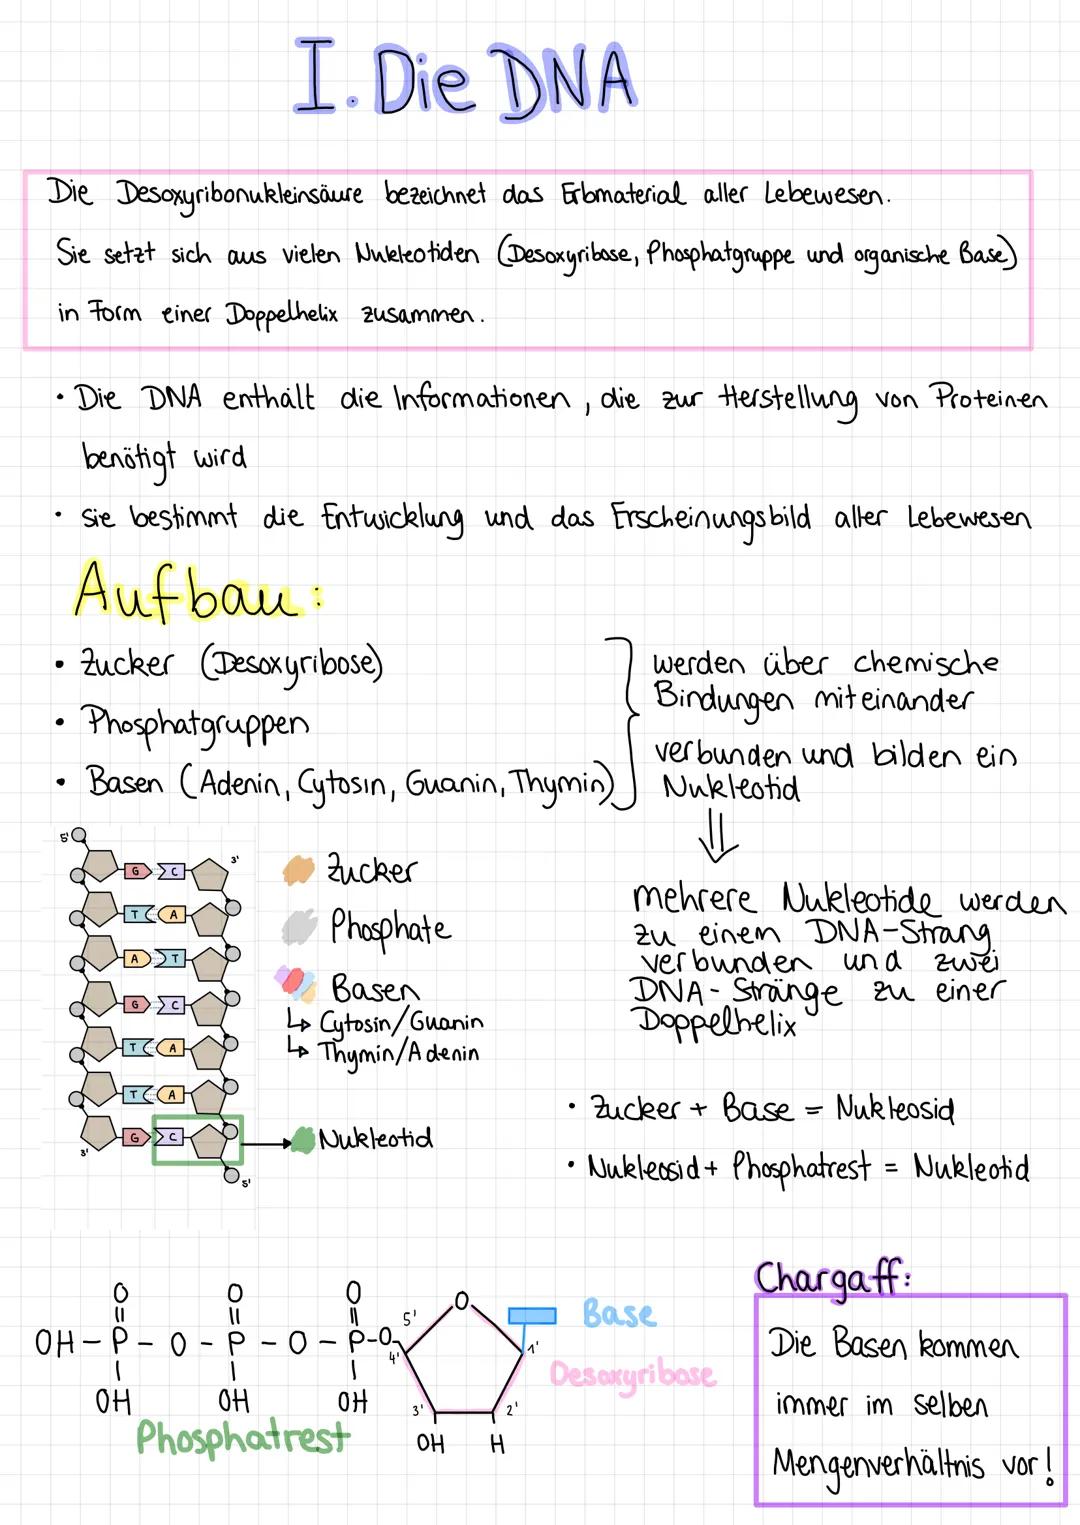 I. Die DNA
Die Desoxyribonukleinsäure bezeichnet das Erbmaterial aller Lebewesen.
Sie setzt sich aus vielen Nukleotiden (Desoxyribose, Phosphatgruppe und organische Base)
in Form einer Doppelhelix zusammen.
• Die DNA enthält die Informationen, die zur Herstellung von Proteinen
benötigt wird
• sie bestimmt die Entwicklung und das Erscheinungsbild aller Lebewesen
Aufbau:
• Zucker (Desoxyribose)
• Phosphatgruppen
• Basen (Adenin, Cytosin, Guanin, Thymin)
werden über chemische
Bindungen miteinander
verbunden und bilden ein
Nukleotid
⇓
mehrere Nukleotide werden
zu einem DNA-Strang
verbunden und zwei
DNA-Stränge zu einer
Doppelhelix
5'
3'
G C
T A
A T
G C
T A
T A
G C
3'
5'
Zucker
Phosphate
Basen
↳ Cytosin/Guanin
↳ Thymin/Adenin
Nukleotid
• Zucker + Base = Nukleosid
• Nukleosid + Phosphatrest = Nukleotid
O O O
OH - P - O - P - O - P - O
OH OH OH
Phosphatrest
5'
O
4'
1'
3'
2'
OH H
Base
Desoxyribose
Chargaff:
Die Basen kommen
immer im selben
Mengenverhältnis vor!